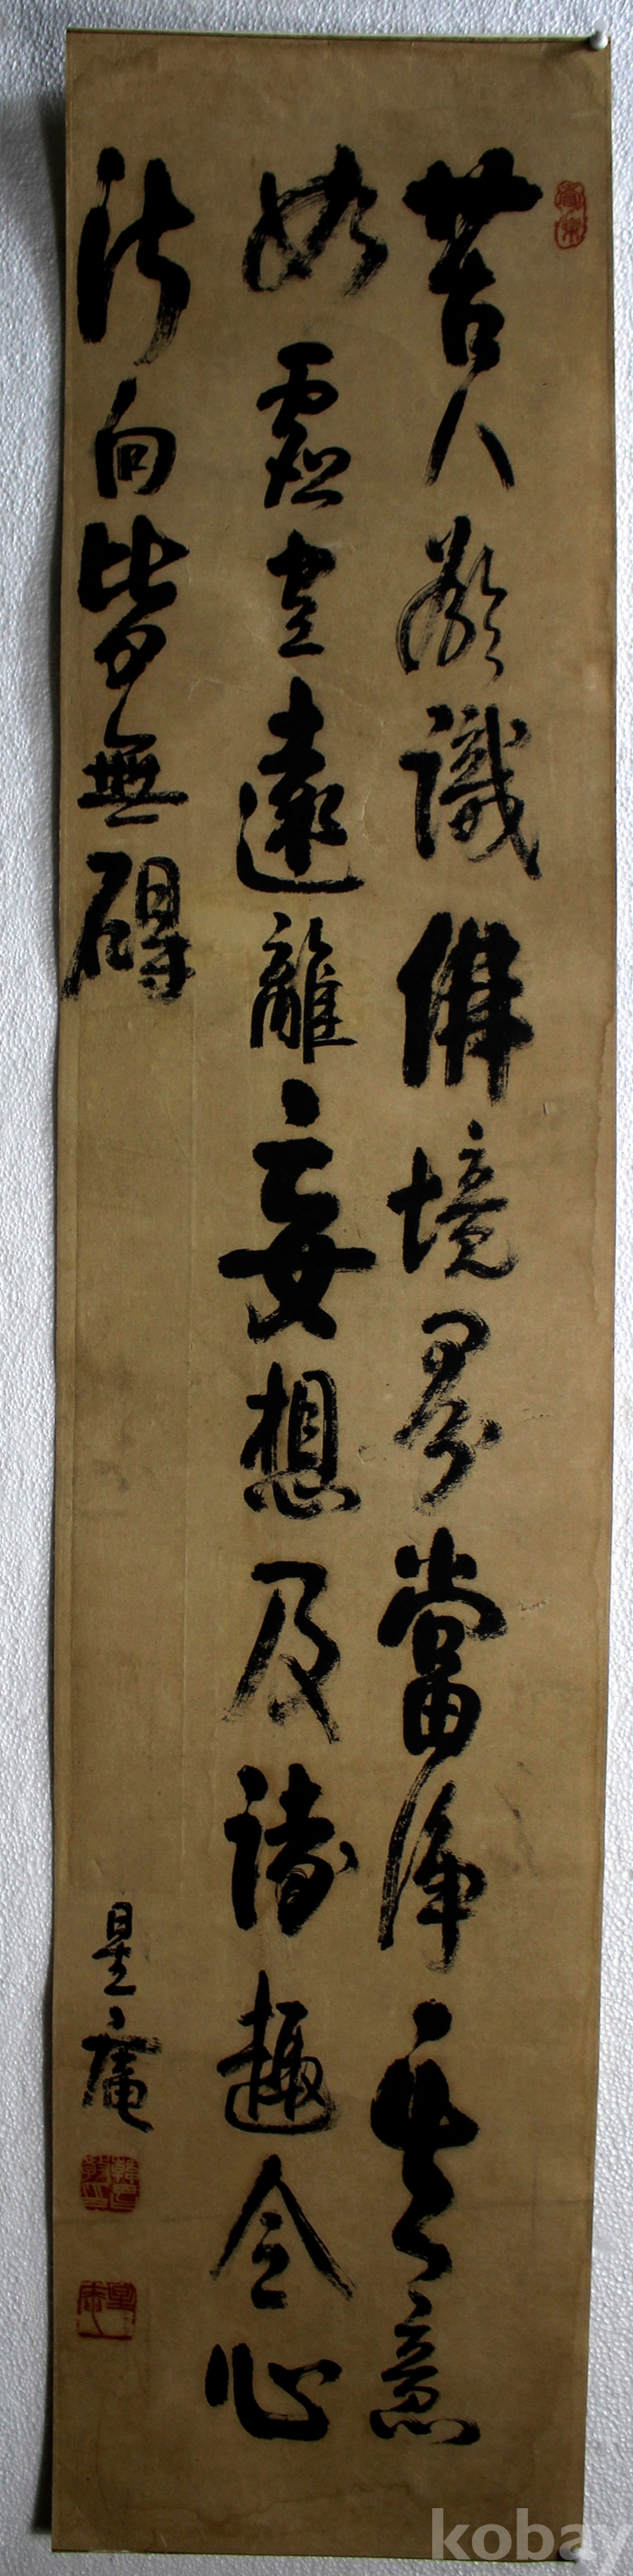 若人欲識佛境界當淨其意
如虛空遠離妄想及諸趣令心
所向皆無碍
星庵
kobay